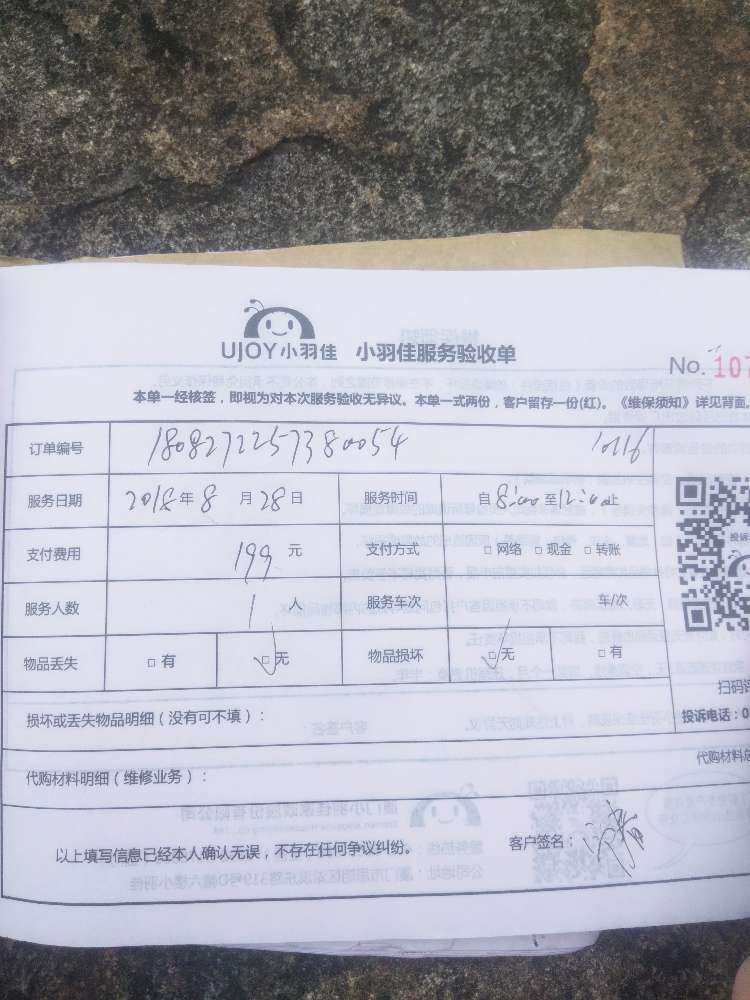 UJOY小羽佳 小羽佳服务验收单
No. 107
本单一经核签，即视为对本次服务验收无异议。本单一式两份，客户留存一份(红)。《维保须知》详见背面。
订单编号 1808272257380054 10216
服务日期 2018年8月28日 服务时间 自8:00至12:00止
支付费用 199元 支付方式 □网络 □现金 □转账
服务人数 1人 服务车次 车/次
物品丢失 □有 □无 物品损坏 □无 □有
扫码
损坏或丢失物品明细（没有可不填）： 投诉电话：0
代购材料明细（维修业务）： 代购材料
以上填写信息已经本人确认无误，不存在任何争议纠纷。 客户签名：